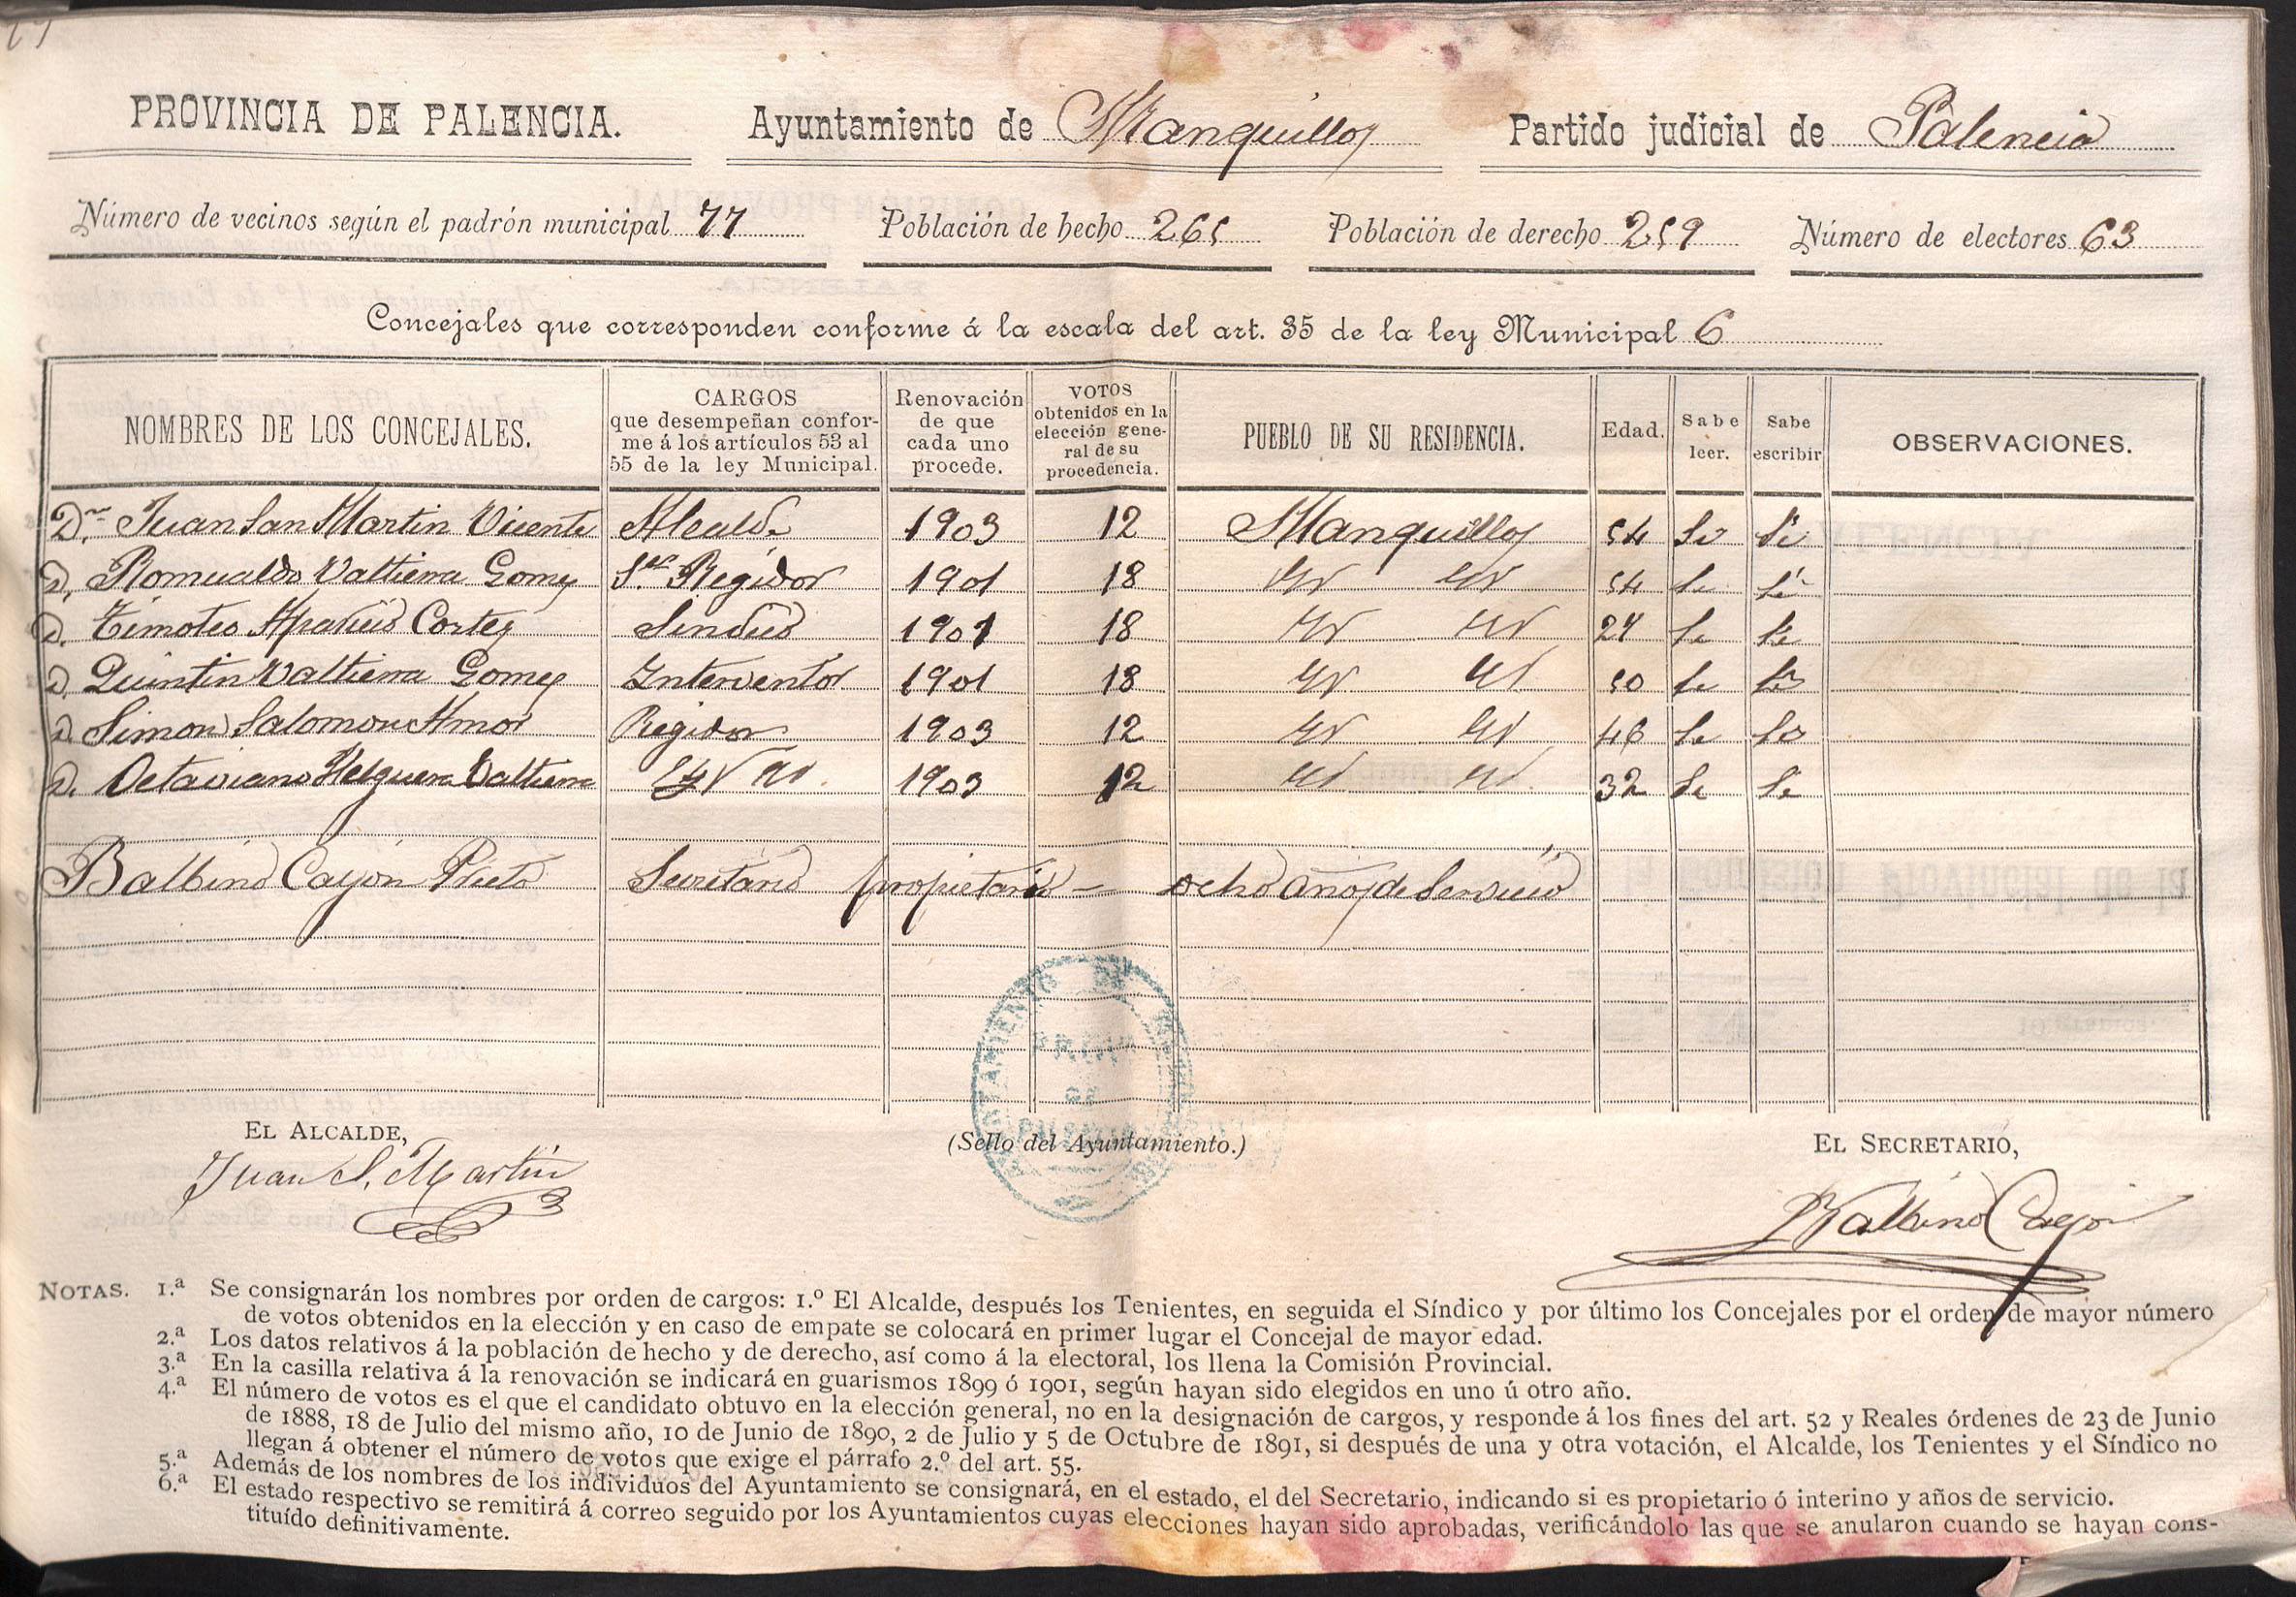 PROVINCIA DE PALENCIA. Ayuntamiento de Manquillos Partido judicial de Palencia
Número de vecinos según el padrón municipal 77 Población de hecho 265 Población de derecho 259 Número de electores 63
Concejales que corresponden conforme á la escala del art. 35 de la ley Municipal 6
NOMBRES DE LOS CONCEJALES. CARGOS que desempeñan conforme á los artículos 53 al 55 de la ley Municipal. Renovación de que cada uno procede. VOTOS obtenidos en la elección general de su procedencia. PUEBLO DE SU RESIDENCIA. Edad. Sabe leer. Sabe escribir OBSERVACIONES.
Dn. Juan San Martin Vicente Alcalde 1903 12 Manquillos 54 Si Si
D. Romualdo Valtierra Gomez 1er Regidor 1901 18 Id Id 54 Si Si
D. Timoteo Aparicio Cortes Sindico 1901 18 Id Id 27 Si Si
D. Quintin Valtierra Gomez Interventor 1901 18 Id Id 50 Si Si
D. Simon Salomon Amor Regidor 1903 12 Id Id 46 Si Si
D. Octaviano Helguera Valtierra Id Id. 1903 12 Id Id. 32 Si Si
Balbino Cayón Prieto Secretario propietario – ocho años de Servicio
AYUNTAMIENTO DE
EL ALCALDE, (Sello del Ayuntamiento.) EL SECRETARIO,
Juan S. Martin Balbino Cayon
NOTAS. 1.ª Se consignarán los nombres por orden de cargos: 1.º El Alcalde, después los Tenientes, en seguida el Síndico y por último los Concejales por el orden de mayor número
de votos obtenidos en la elección y en caso de empate se colocará en primer lugar el Concejal de mayor edad.
2.ª Los datos relativos á la población de hecho y de derecho, así como á la electoral, los llena la Comisión Provincial.
3.ª En la casilla relativa á la renovación se indicará en guarismos 1899 ó 1901, según hayan sido elegidos en uno ú otro año.
4.ª El número de votos es el que el candidato obtuvo en la elección general, no en la designación de cargos, y responde á los fines del art. 52 y Reales órdenes de 23 de Junio
de 1888, 18 de Julio del mismo año, 10 de Junio de 1890, 2 de Julio y 5 de Octubre de 1891, si después de una y otra votación, el Alcalde, los Tenientes y el Síndico no
llegan á obtener el número de votos que exige el párrafo 2.º del art. 55.
5.ª Además de los nombres de los individuos del Ayuntamiento se consignará, en el estado, el del Secretario, indicando si es propietario ó interino y años de servicio.
6.ª El estado respectivo se remitirá á correo seguido por los Ayuntamientos cuyas elecciones hayan sido aprobadas, verificándolo las que se anularon cuando se hayan cons-
tituído definitivamente.